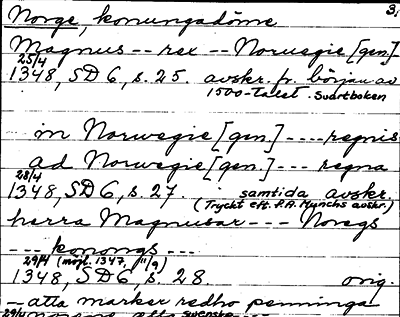 3.
Norge, konungadöme
Magnus -- rex -- Norwegie [gen]-
25/4
1348, SD 6, s. 25. avskr. fr. början av
1500-talet. Svartboken
in Norwegie [gen] ---- regnis
ad Norwegie [gen.] --- regna
28/4
1348, SD 6, s. 27. samtida avskr.
(Tryckt eft. P.A. Munchs avskr.)
herra Magnusar --- Noregs
--- konongs ---
29/4 (möjl. 1347, 11/9)
1348, SD 6, s. 28. orig.
- atta marker redho penninga
29/4 svenska